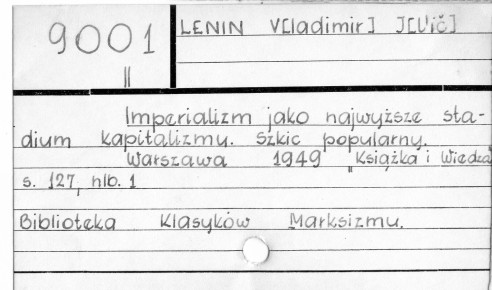 9001
II
LENIN V[ladimir] J[l'ič]
Imperializm jako najwyższe sta-
dium kapitalizmu. Szkic popularny.
Warszawa 1949 "Książka i Wiedza
s. 127, nlb. 1
Biblioteka Klasyków Marksizmu.